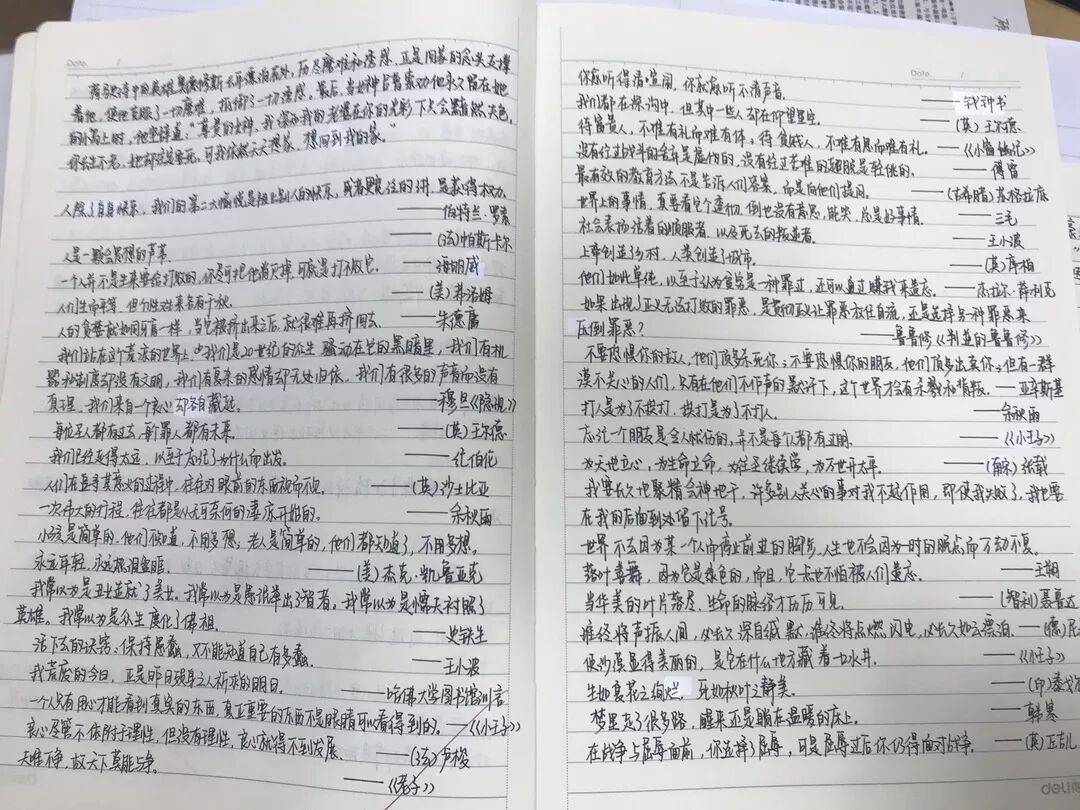 Date. /
荷马史诗中的英雄奥德修斯长年漂泊在外,历尽磨难和诱惑,正是回家的念头支撑
着他,使他克服了一切磨难,抵御了一切诱惑。最后,当女神占着索动他永久留在她
的小岛上时,他坚持道:“尊贵的女神,我深知我的老婆在你的光彩下只会黯然失色,
你长生不老,她却注定要死,可我依然天天想家,想回到我的家。”
人除了自身快乐,我们的第二大愉悦是阻止别人的快乐,或者更宽泛的讲,是获得权力。
——伯特兰·罗素
人是一颗会思想的芦苇. ——(法)帕斯卡尔
一个人并不是生来要给打败的,你尽可把他消灭掉,可就是打不败它. ——海明威
人们生命平等,但个性从来各有千秋. ——(美)弗洛姆
人的贪婪就如同牙膏一样,当它被挤出来之后,就很难再挤回去. ——朱德庸
我们站在这个荒凉的世界上,我们是20世纪的众生 骚动在它的黑暗里,我们有机
器和制度却没有文明,我们有复杂的感情却无处归依,我们有很多的声音而没有
真理,我们来自一个良心却各自藏起。 ——穆旦《隐现》
每位圣人都有过去,每个罪人都有未来。 ——(英)王尔德
我们已经走得太远,以至于忘记了为什么而出发。 ——纪伯伦
人们在追寻其意义的过程中,往往对眼前的东西视而不见。 ——(英)沙士比亚
一次伟大的行程,往往都是从无可奈何的凄凉开始的。 ——余秋雨
小孩是简单的,他们不知道,不用多想;老人是简单的,他们都知道了,不用多想。
永远年轻,永远热泪盈眶. ——(美)杰克·凯鲁亚克
我常以为是丑女造就了美女。我常以为是愚氓举出了智者。我常以为是懦夫衬照了
英雄。我常以为是众生度化了佛祖. ——史铁生
活下去的诀窍:保持愚蠢,又不能知道自己有多蠢. ——王小波
我荒废的今日,正是昨日殒身之人祈求的明日. ——哈佛大学图书馆训言
一个人只有用心才能看到真实的东西,真正重要的东西不是眼睛可以看得到的. ——《小王子》
良心尽管不依附于理性,但没有理性,良心就得不到发展. ——(法)卢梭
夫唯不争,故天下莫能与争.
——《老子》
Date. /
你就听得清喧闹,你就就听不清声音. ——钱钟书
我们都在深沟中,但其中一些人却在仰望星空. ——(英)王尔德
待富贵人,不难有礼而难有体。待贫贱人,不难有恩而难有礼. ——《小窗幽记》
没有经过战斗的舍弃是虚伪的,没有经过苦难的超脱是轻佻的. ——傅雷
最有效的教育方法不是告诉人们答案,而是向他们提问. ——(古希腊)苏格拉底
世界上的事情,真要看它个透彻,倒也没有意思,能哭,总是好事情. ——三毛
社会表扬活着的顺服者,以及死去的叛逆者. ——王小波
上帝创造了乡村,人类创造了城市. ——(英)库柏
他们如此单纯,以至于认为贪尝是一种罪过,还可以通过赎我来遗忘. ——杰拉尔·萨利克
如果出现了正义无法打败的罪恶,是贯彻正义让罪恶放任自流,还是选择另一种罪恶来
压倒罪恶? ——鲁鲁修《判逆的鲁鲁修》
不要恐惧你的敌人,他们顶多杀死你;不要恐惧你的朋友,他们顶多出卖你,但有一群
漠不关心的人们,只有在他们不作声的默许下,这个世界才会有杀戮和背叛. ——亚辛斯基
打人是为了不挨打,挨打是为了不打人. ——余秋雨
忘记一个朋友是令人忧伤的,并不是每个人都有过朋. ——《小王子》
为天地立心,为生命立命,为往圣继绝学,为万世开太平. ——(南宋)张载
我要长久地聚精会神地干,许多别人关心的事对我不起作用,即使我失败了,我也要
在我的后面到处留下记号.
世界不会因为某一个人而停止前进的脚步,人生也不会因为一时的脱点而不动不复。
落叶喜舞,因为它是绿色的,而且,它一点也不怕被人们遗忘. ——王朔
当华美的叶片落尽,生命的脉络才历历可见. ——(智利)聂鲁达
谁终将声振人间,必长久深自缄默;谁终将点燃闪电,必长久如云漂泊. ——(德)尼
使沙漠显得美丽的,是它在什么地方藏着一口水井. ——《小王子》
生如夏花之绚烂,死如秋叶之静美. ——(印)泰戈尔
梦里走了很多路,醒来还是躺在温暖的床上. ——韩寒
在战争与屈辱面前,你选择了屈辱,可是屈辱过后你仍得面对战争. ——(英)丘吉儿
deli得